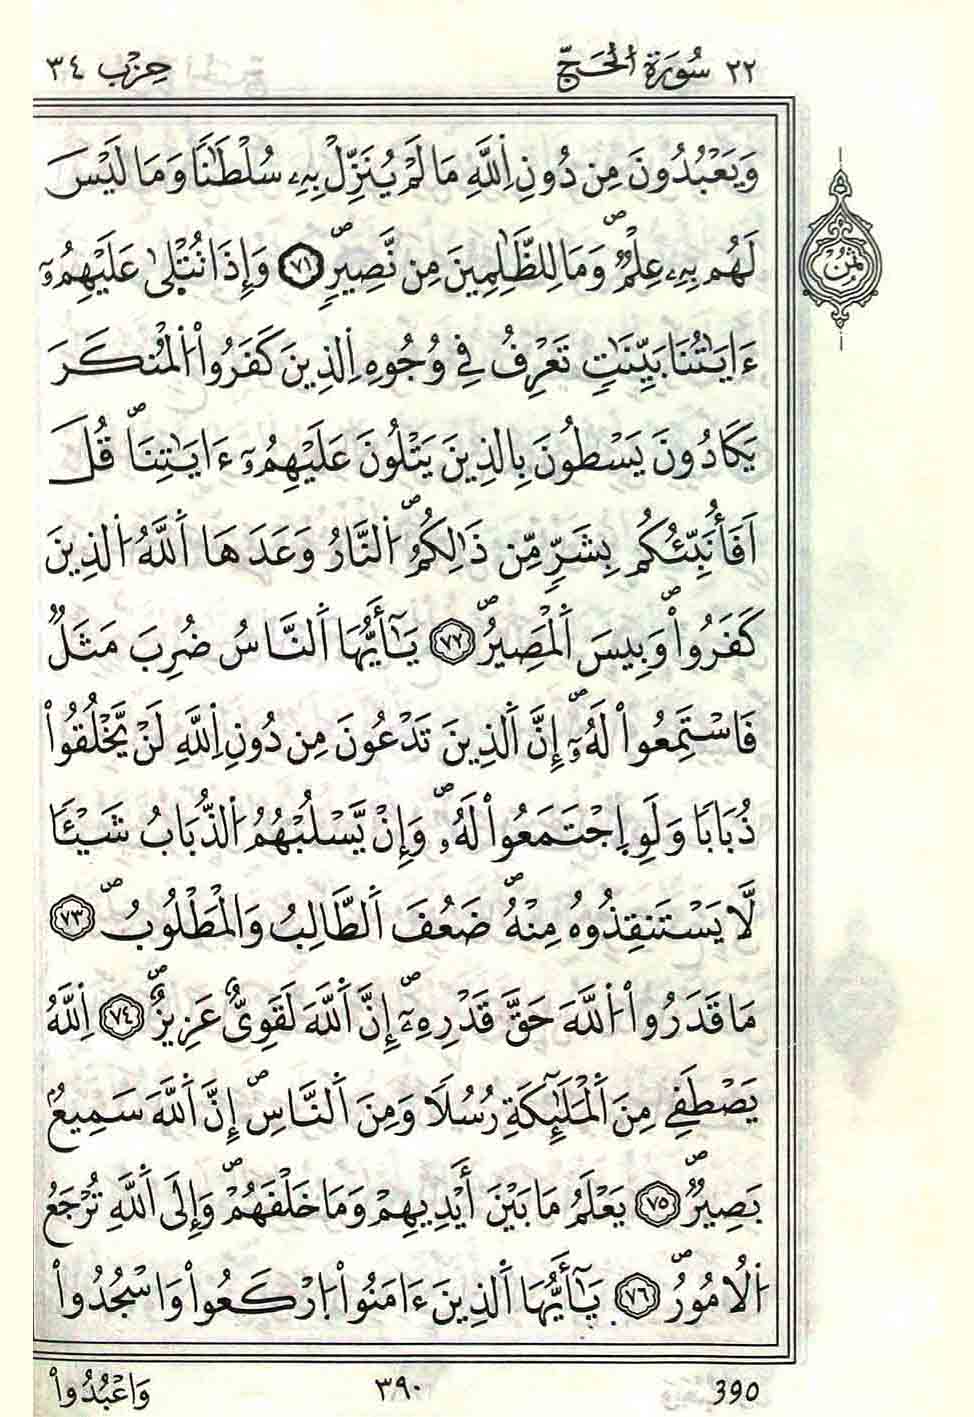 ٢٢ سُورَةُ الْحَجِّ حِزْب ٣٤
وَيَعْبُدُونَ مِن دُونِ اِ۬للَّهِ مَا لَمْ يُنَزِّلْ بِهِۦ سُلْطَٰناٗ وَمَا لَيْسَ
لَهُم بِهِۦ عِلْمٞۖ وَمَا لِلظَّٰلِمِينَ مِن نَّصِيرٖۖ ٧١ وَإِذَا تُتْلَىٰ عَلَيْهِمُۥٓ
ثُمُنْ
ءَايَٰتُنَا بَيِّنَٰتٖ تَعْرِفُ فِے وُجُوهِ اِ۬لذِينَ كَفَرُواْ اُ۬لْمُنكَرَ
يَكَادُونَ يَسْطُونَ بِالذِينَ يَتْلُونَ عَلَيْهِمُۥٓ ءَايَٰتِنَاۖ قُلَ
اَفَأُنَبِّئُكُم بِشَرّٖ مِّن ذَٰلِكُمُۖ اُ۬لنَّارُ وَعَدَهَا اَ۬للَّهُ اُ۬لذِينَ
كَفَرُواْۖ وَبِيسَ اَ۬لْمَصِيرُۖ ٧٢ يَٰٓأَيُّهَا اَ۬لنَّاسُ ضُرِبَ مَثَلٞ
فَاسْتَمِعُواْ لَهُۥٓۖ إِنَّ اَ۬لذِينَ تَدْعُونَ مِن دُونِ اِ۬للَّهِ لَنْ يَّخْلُقُواْ
ذُبَاباٗ وَلَوِ اِ۪جْتَمَعُواْ لَهُۥۖ وَإِنْ يَّسْلُبْهُمُ اُ۬لذُّبَابُ شَيْـٔاٗ
لَّا يَسْتَنقِذُوهُ مِنْهُۖ ضَعُفَ اَ۬لطَّالِبُ وَالْمَطْلُوبُۖ ٧٣
مَا قَدَرُواْ اُ۬للَّهَ حَقَّ قَدْرِهِۦٓۖ إِنَّ اَ۬للَّهَ لَقَوِيٌّ عَزِيزٌۖ ٧٤ اِ۬للَّهُ
يَصْطَفِے مِنَ اَ۬لْمَلَٰٓئِكَةِ رُسُلاٗ وَمِنَ اَ۬لنَّاسِۖ إِنَّ اَ۬للَّهَ سَمِيعُۢ
بَصِيرٞۖ ٧٥ يَعْلَمُ مَا بَيْنَ أَيْدِيهِمْ وَمَا خَلْفَهُمْۖ وَإِلَى اَ۬للَّهِ تُرْجَعُ
اُ۬لُامُورُۖ ٧٦ يَٰٓأَيُّهَا اَ۬لذِينَ ءَامَنُواْ اُ۪رْكَعُواْ وَاسْجُدُواْ
وَاعْبُدُواْ ٣٩٠ 390